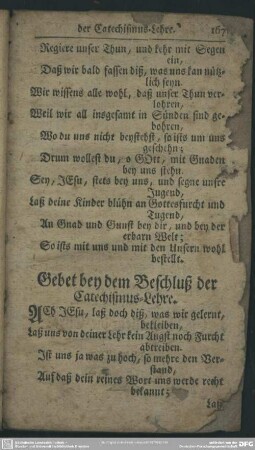 der Catechismus-Lehre. 167
Regiere unser Thun, und kehr mit Segen
ein,
Daß wir bald fassen diß, was uns kan nütz-
lich seyn.
Wir wissens alle wohl, daß unser Thun ver-
lohren,
Weil wir all insgesamt in Sünden sind ge-
bohren,
Wo du uns nicht beystehst, so ists um uns
geschehn;
Drum wollest du, o GOtt, mit Gnaden
bey uns stehn.
Sey, JEsu, stets bey uns, und segne unsre
Jugend,
Laß deine Kinder blühn an Gottesfurcht und
Tugend,
An Gnad und Gunst bey dir, und bey der
erbarn Welt;
So ists mit uns und mit den Unsern wohl
bestellt.
Gebet bey dem Beschluß der
Catechismus-Lehre.
ACh JEsu, laß doch diß, was wir gelernt,
bekleiben,
Laß uns von deiner Lehr kein Angst noch Furcht
abtreiben.
Ist uns ja was zu hoch, so mehre den Ver-
stand,
Auf daß dein reines Wort uns werde recht
bekannt;
Laß